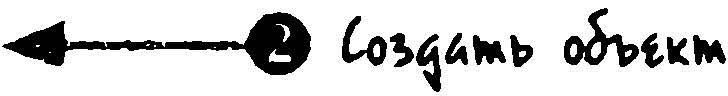 2 Создать объект